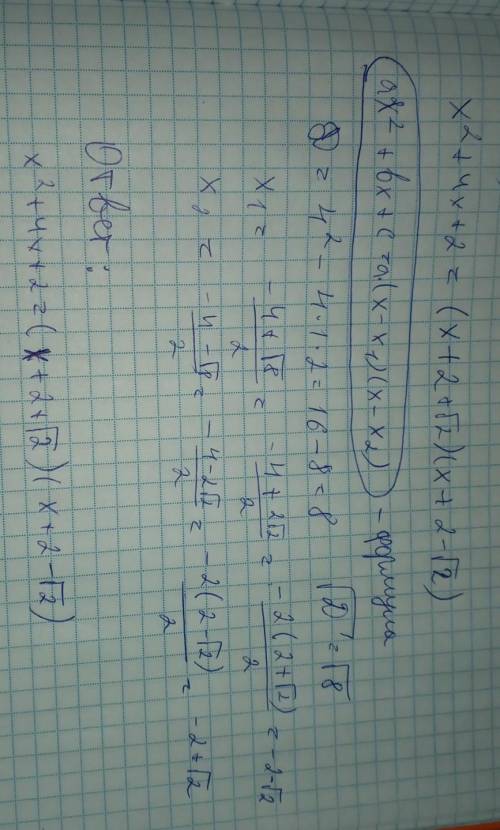 x² + 4x + 2 = (x + 2 + √2)(x + 2 - √2)
ax² + bx + c = a(x - x₁)(x - x₂) - формула
D = 4² - 4·1·2 = 16 - 8 = 8 √D = √8
x₁ = (-4 + √8)/2 = (-4 + 2√2)/2 = -2(2 + √2)/2 = -2 - √2
x₂ = (-4 - √8)/2 = (-4 - 2√2)/2 = -2(2 - √2)/2 = -2 + √2
Ответ:
x² + 4x + 2 = (x + 2 + √2)(x + 2 - √2)